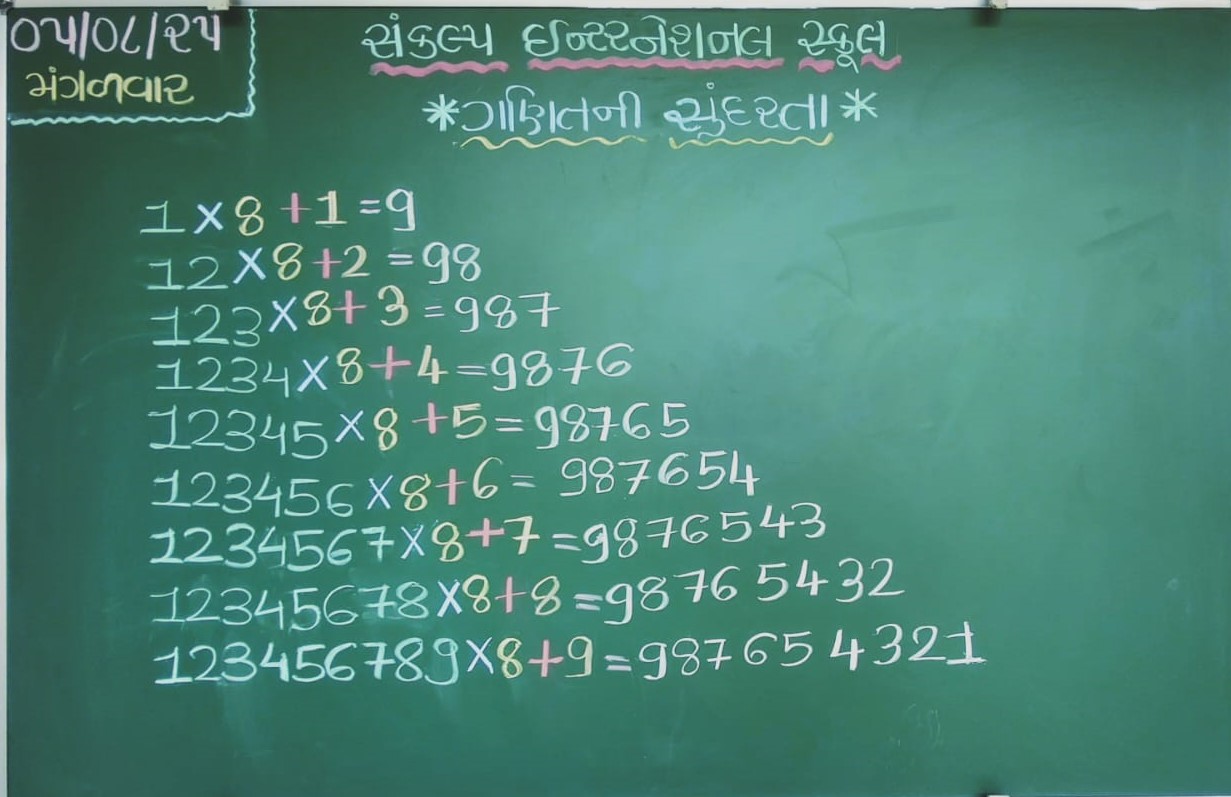 ૦૫/૦૮/૨૫
મંગળવાર
સંકલ્પ ઈન્ટરનેશનલ સ્કૂલ
*ગણિતની સુંદરતા*
1×8+1=9
12×8+2=98
123×8+3=987
1234×8+4=9876
12345×8+5=98765
123456×8+6=987654
1234567×8+7=9876543
12345678×8+8=98765432
123456789×8+9=987654321